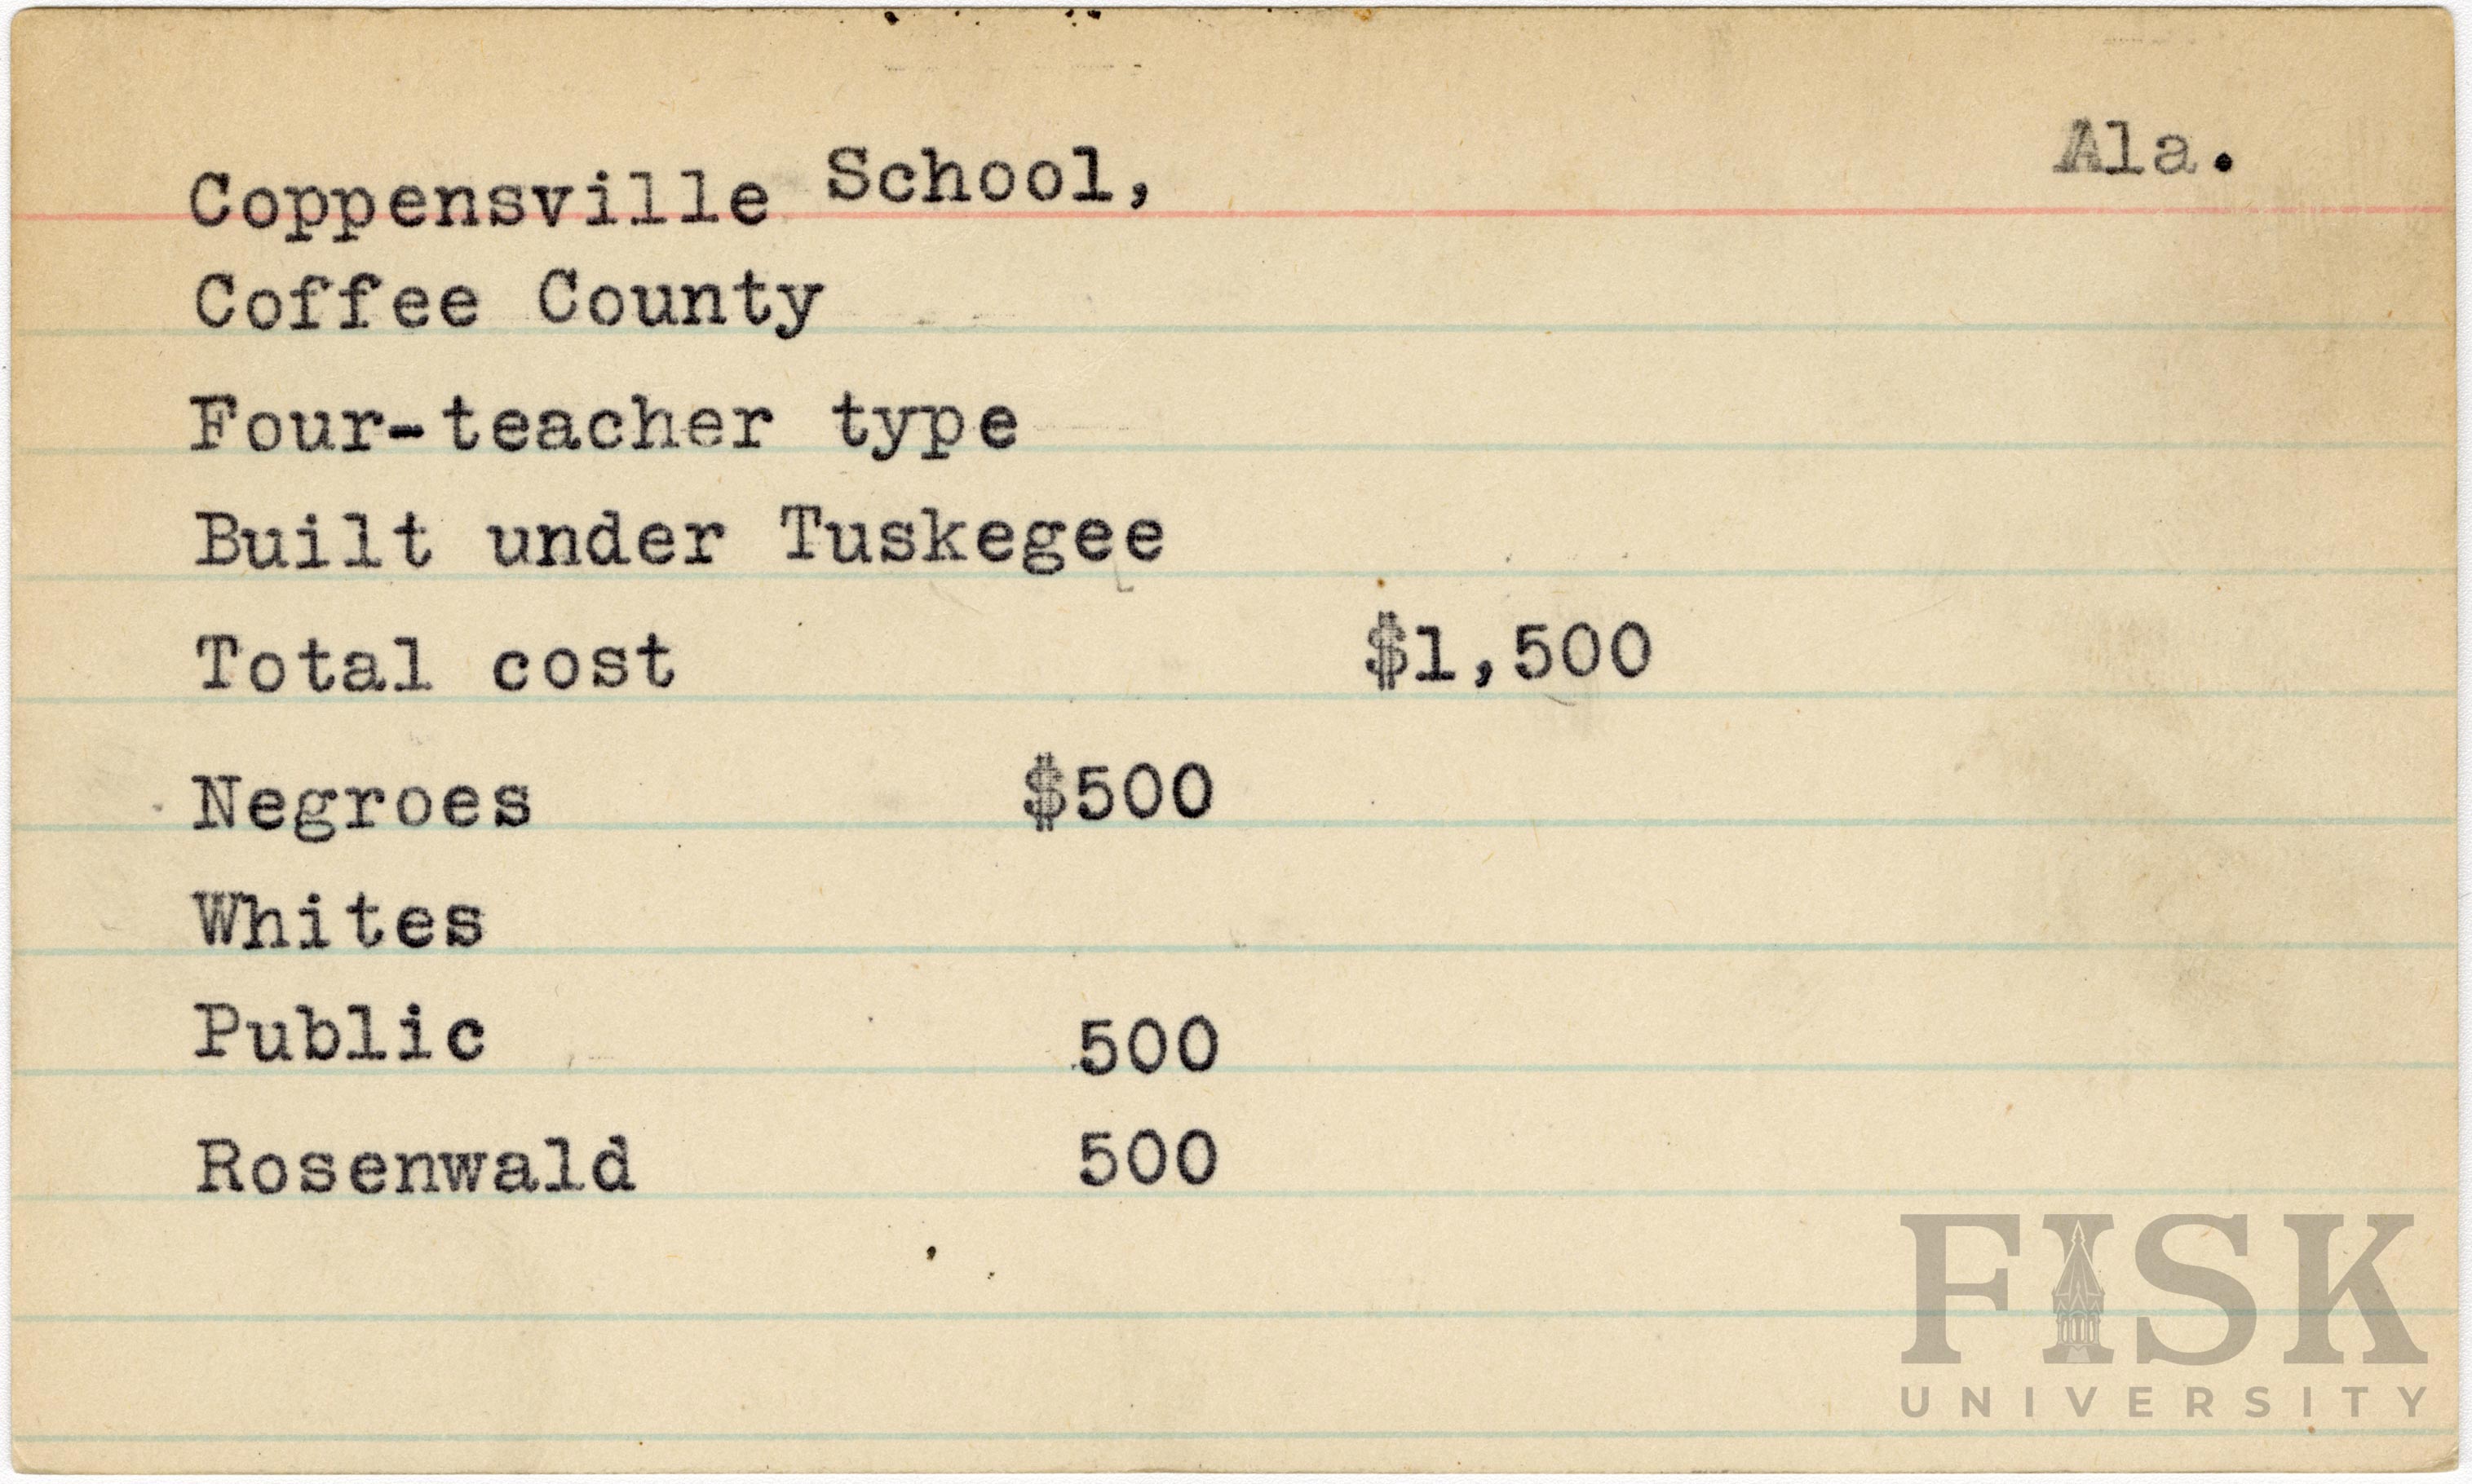 Ala.
Coppensville School,
Coffee County
Four-teacher type
Built under Tuskegee
Total cost $1,500
Negroes $500
Whites
Public 500
Rosenwald 500
FISK
UNIVERSITY